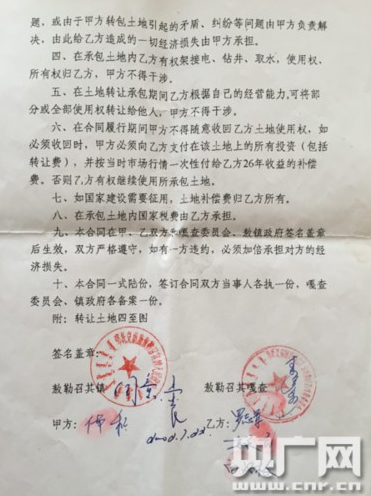 题，或由于甲方转包土地引起的矛盾、纠纷等问题由甲方负责解
决，由此给乙方造成的一切经济损失由甲方承担。
四、在承包土地内乙方有权架接电、钻井、取水，使用权、
所有权归乙方，甲方不得干涉。
五、在土地转让承包期间乙方根据自己的经营能力，可将部
分或全部使用权转给他人，甲方不得干涉。
六、在合同履行期间甲方不得随意收回乙方土地使用权，如
必须收回时，甲方必须向乙方支付在该土地上的所有投资（包括
转让费），并按当时市场行情一次性付给乙方26年收益的补偿
费。否则乙方有权继续使用所承包土地。
七、如国家建设需要征用，土地补偿费归乙方所有。
八、在承包土地内国家税费由乙方承担。
九、本合同在甲、乙双方和嘎查委员会、敖镇政府签名盖章
后生效，双方严格遵守，如有一方违约，必须加倍承担对方的经
济损失。
十、本合同一式陆份，签订合同双方当事人各执一份，嘎查
委员会、镇政府各备案一份。
附：转让土地四至图
签名盖章：
敖勒召其镇
敖勒召其嘎查
甲方：
乙方：
央广网
www.cnr.cn